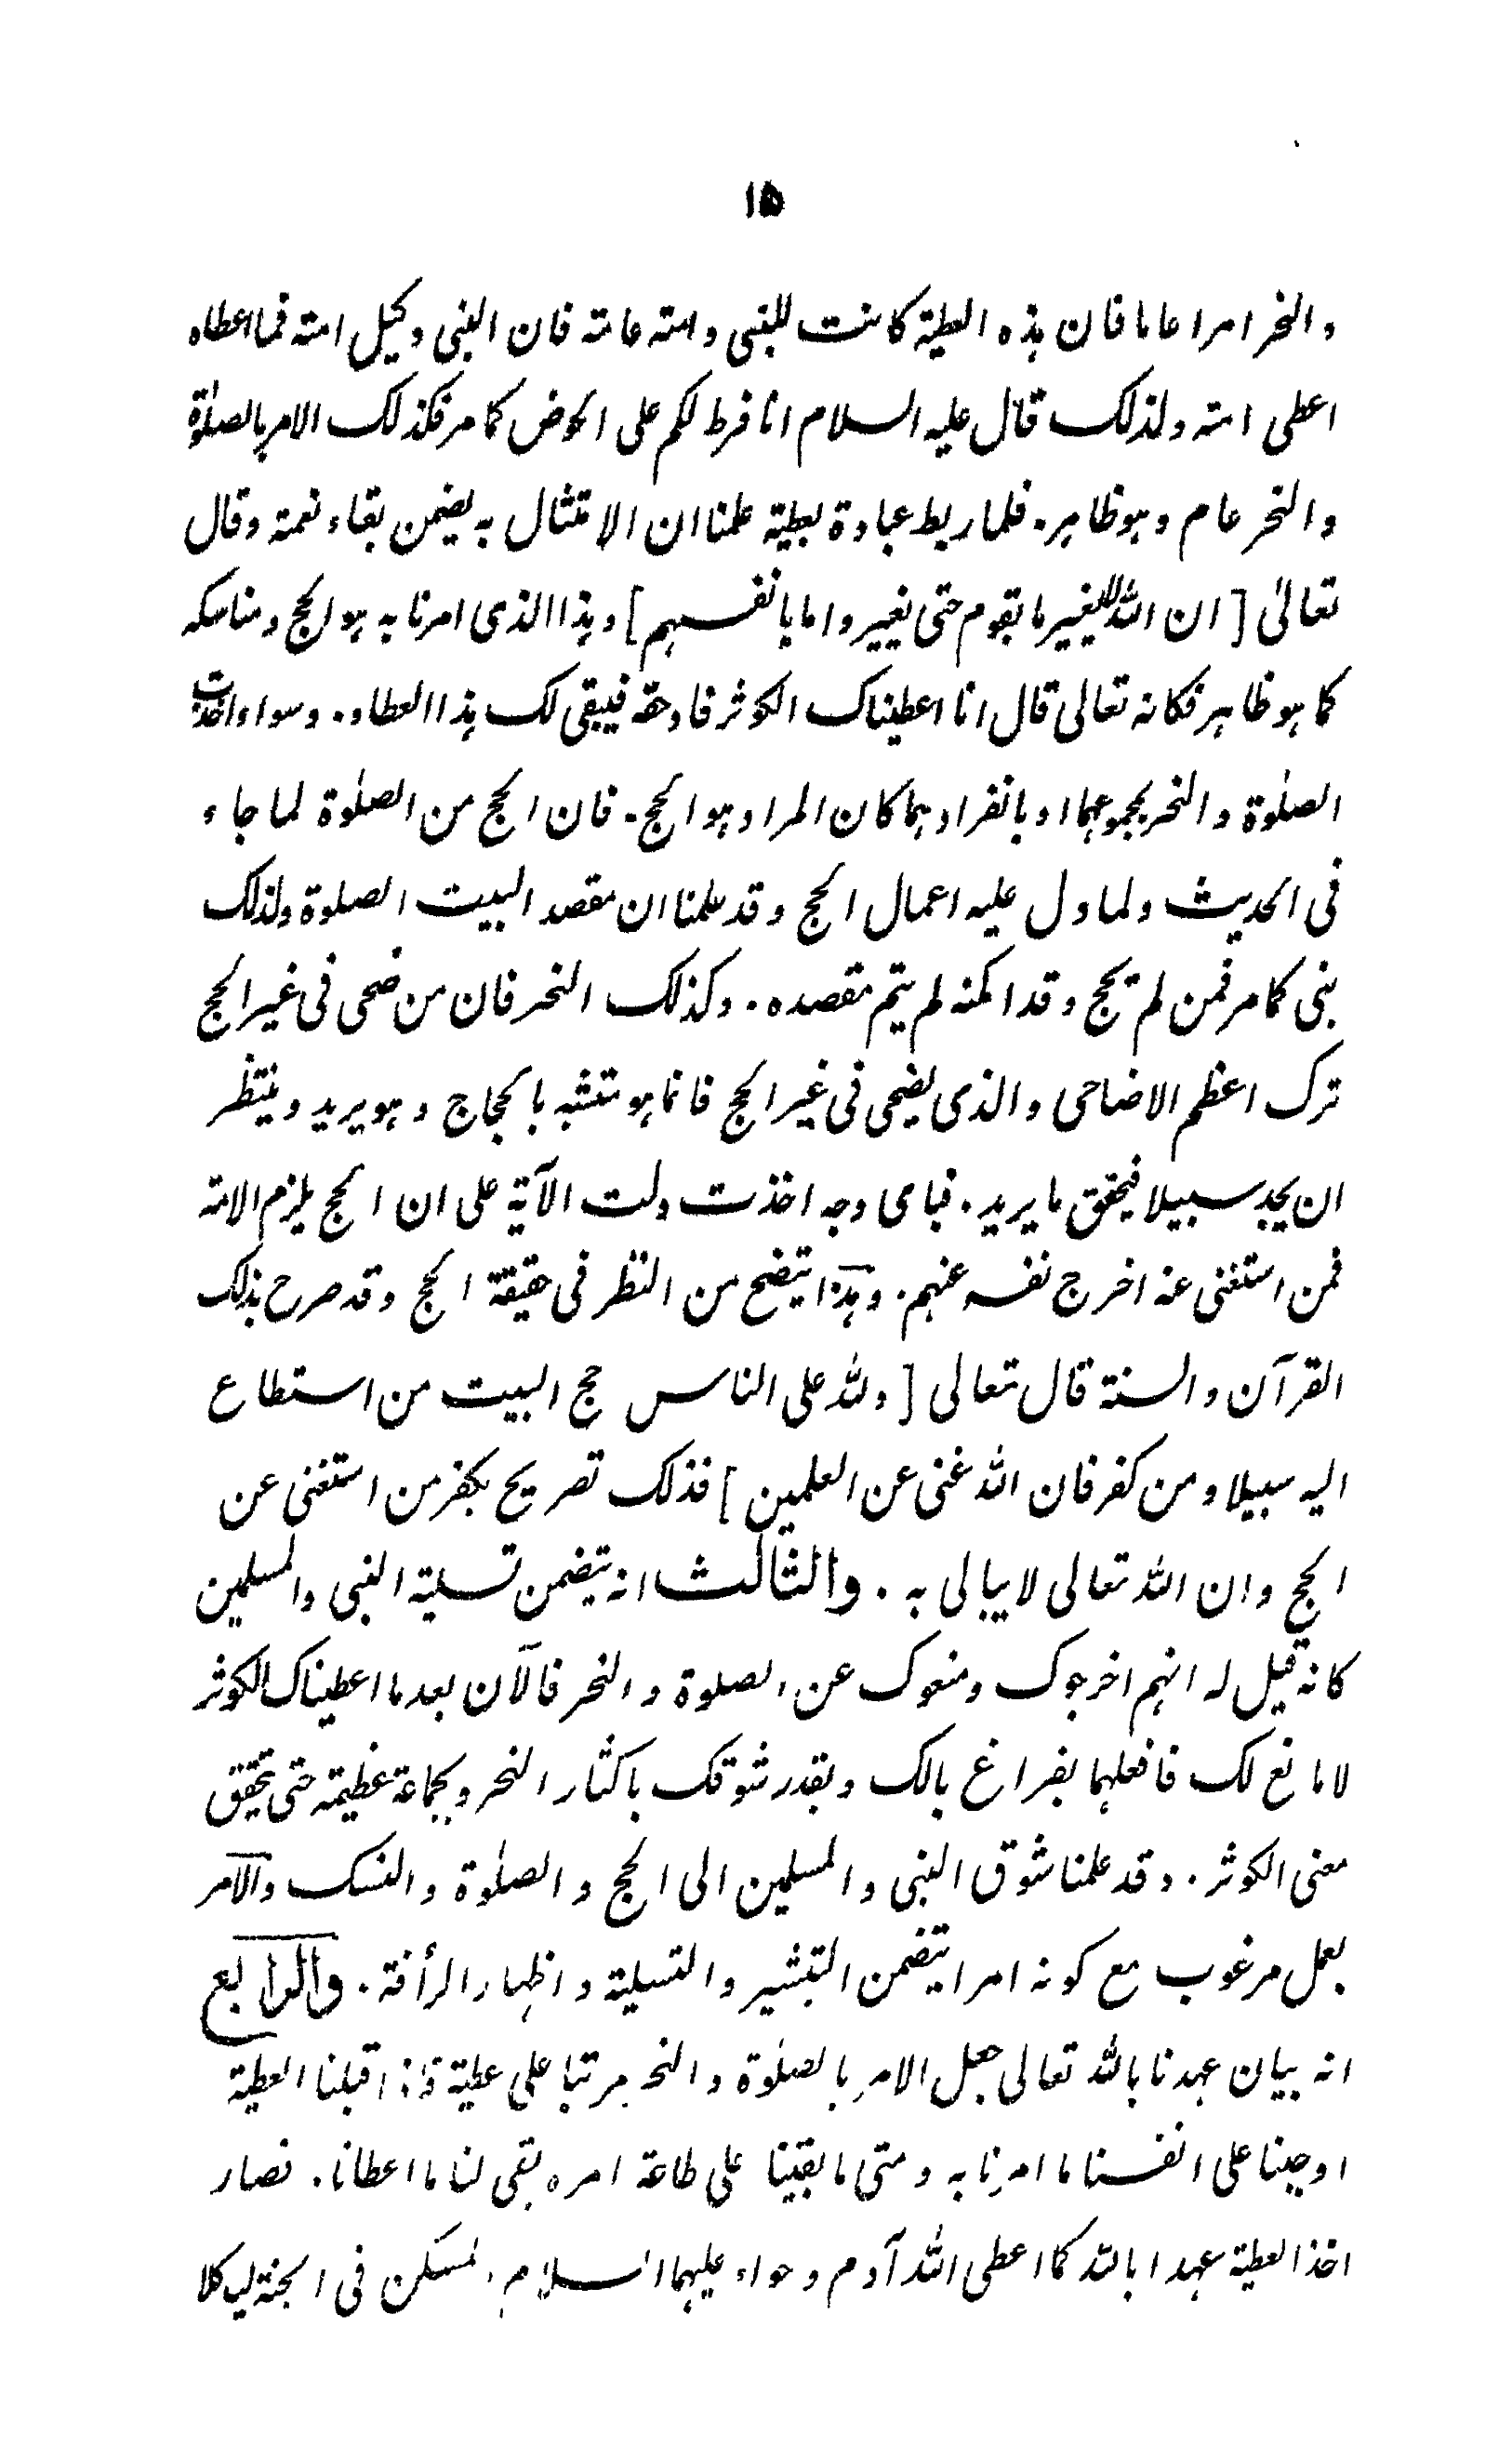 ۱۵
والنحر امرا عاما فان هذه العطية كانت للنبى وامته عامته فان النبى وكيل امته فما اعطاه
اعطى امته ولذلك قال عليه السلام انا فرط لكم على الحوض كما مر فكذلك الامر بالصلوٰة
والنحر عام وهو ظاهر. فلما ربط عبادة بعطية علمنا ان الامتثال به يضمن بقاء نعمة وقال
تعالىٰ [ ان الله لا يغير ما بقوم حتى يغيروا ما بانفسهم ] وهذا الذى امرنا به هو الحج ومناسكه
كما هو ظاهر فكانه تعالى قال انا اعطيناك الكوثر فاد حقه فيبقى لك هذا العطاء. وسواء اخذت
الصلوٰة والنحر بمجموعهما او بانفرادهما كان المراد هو الحج. فان الحج من الصلوٰة لما جاء
فى الحديث ولما دل عليه اعمال الحج وقد علمنا ان مقصد البيت الصلوة ولذلك
بنى كما مر فمن لم يحج وقد امكنه لم يتم مقصده. وكذلك النحر فان من ضحى فى غير الحج
ترك اعظم الاضاحى والذى يضحى فى غير الحج فانما هو متشبه بالحجاج وهو يريد وينتظر
ان يجد سبيلا فيحقق ما يريد. فباى وجه اخذت دلت الآية على ان الحج يلزم الامته
فمن استغنى عنه اخرج نفسه عنهم. وهذا يتضح من النظر فى حقيقة الحج وقد صرح بذلك
القرآن والسنة قال تعالى [ ولله على الناس حج البيت من استطاع
اليه سبيلا ومن كفر فان الله غنى عن العلمين ] فذلك تصريح بكفر من استغنى عن
الحج وان الله تعالى لا يبالى به. والثالث انه يتضمن تسلية النبى والمسلمين
كانه قيل له انهم اخرجوك ومنعوك عن الصلوة والنحر فالآن بعد ما اعطيناك الكوثر
لا مانع لك فافعلهما بفراغ بالك وبقدر شوقك باكثار النحر وبجماعة عظيمة حتى يحقق
معنى الكوثر. وقد علمنا شوق النبى والمسلمين الى الحج والصلوٰة والنسك والامر
بعمل مرغوب مع كونه امرا يتضمن التبشير والتسلية واظهار الرأفة. والرابع
انه بيان عهدنا بالله تعالى جعل الامر بالصلوٰة والنحر مرتبا على عطية فاذا قبلنا العطية
اوجبنا على انفسنا ما امرنا به ومتى ما بقينا على طاعة امره بقى لنا ما اعطانا. فصار
اخذ العطية عهدا بالله كما اعطى الله آدم وحواء عليهما السلام المسكن فى الجنة لياكلا